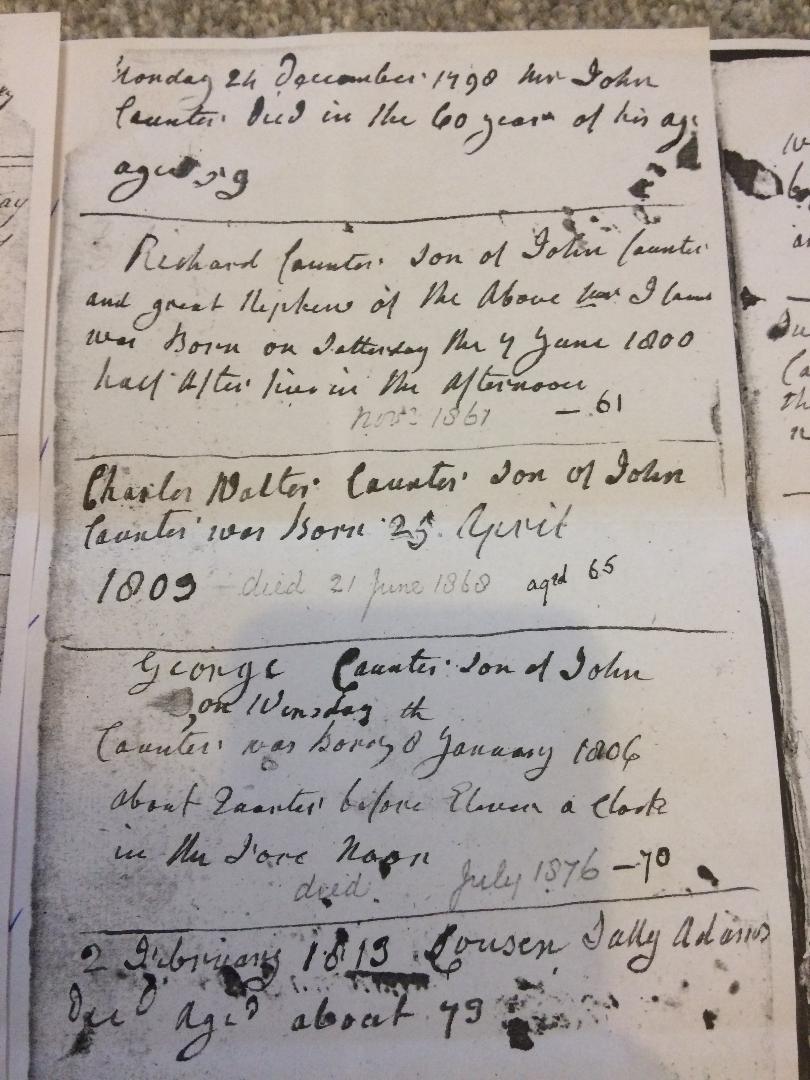 Monday 24 December 1798 Mr John
Caunter Died in the 60 year of his age
aged 59
Richard Caunter Son of John Caunter
and great Nephew of the Above Mr J Caun
was Born on Satterday the 7 June 1800
half After five in the Afternoon
Novr 1861 — 61
Charles Walter Caunter Son of John
Caunter was Born 25 April
1803 died 21 June 1868 aged 65
George Caunter Son of John
on Wensday th
Caunter was Born 8 January 1806
about Quarter before Eleven a Clock
in the Fore Noon
died July 1876 — 70
2 February 1813 Cousen Sally Adams
Died Aged about 73